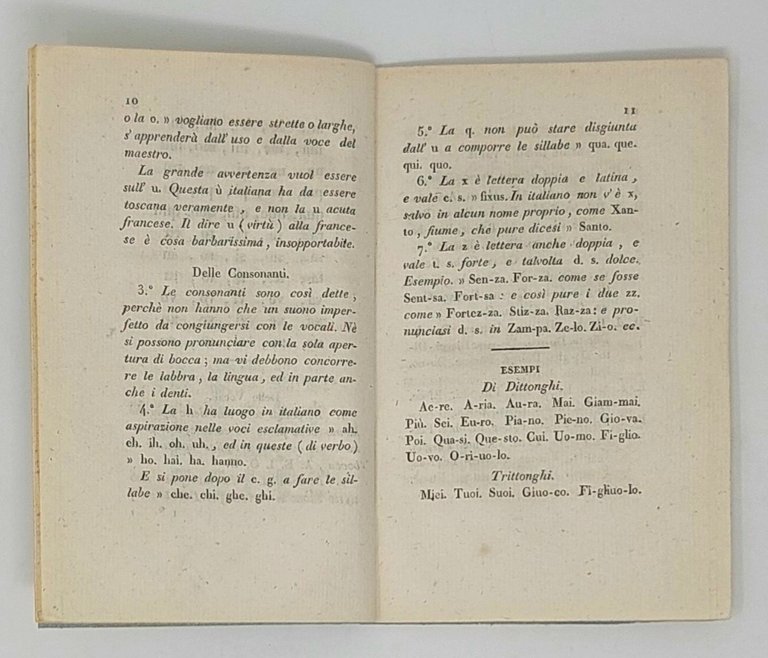 10
o la o. » vogliano essere strette o larghe,
s'apprenderà dall'uso e dalla voce del
maestro.
La grande avvertenza vuol essere
sull' u. Questa ù italiana ha da essere
toscana veramente, e non la u acuta
francese. Il dire u (virtù) alla france-
se è cosa barbarissima, insopportabile.
Delle Consonanti.
3.° Le consonanti sono così dette,
perchè non hanno che un suono imper-
fetto da congiungersi con le vocali. Nè
si possono pronunciare con la sola aper-
tura di bocca; ma vi debbono concorre-
re le labbra, la lingua, ed in parte an-
che i denti.
4.° La h ha luogo in italiano come
aspirazione nelle voci esclamative » ah.
eh. ih. oh. uh., ed in queste (di verbo)
» ho. hai. ha. hanno.
E si pone dopo il c. g. a fare le sil-
labe » che. chi. ghe. ghi.
11
5.° La q. non può stare disgiunta
dall' u a comporre le sillabe » qua. que.
qui. quo.
6.° La x è lettera doppia e latina,
e vale c. s. » fixus. In italiano non v'è x,
salvo in alcun nome proprio, come Xan-
to, fiume, che pure dicesi » Santo.
7.° La z è lettera anche doppia, e
vale t. s. forte, e talvolta d. s. dolce.
Esempio. » Sen-za. For-za. come se fosse
Sent-sa. Fort-sa: e così pure i due zz.
come » Fortez-za. Stiz-za. Raz-za: e pro-
nunciasi d. s. in Zam-pa. Ze-lo. Zi-o. ec.
ESEMPI
Di Dittonghi.
Ae-re. A-ria. Au-ra. Mai. Giam-mai.
Più. Sei. Eu-ro. Pia-no. Pie-no. Gio-va.
Poi. Qua-si. Que-sto. Cui. Uo-mo. Fi-glio.
Uo-vo. O-ri-uo-lo.
Trittonghi.
Miei. Tuoi. Suoi. Giuo-co. Fi-gliuo-lo.